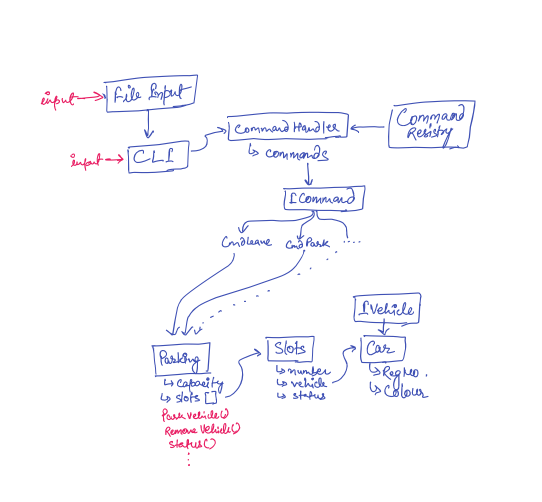 input
File Input
input
CLI
Command Handler
↳ commands
Command
Resistry
ICommand
CmdLeave
CmdPark
....
Parking
↳ capacity
↳ slots []
Park vehicle()
Remove Vehicle()
Status()
Slots
↳ number
↳ vehicle
↳ status
IVehicle
Car
↳ Reg No.
↳ Colour